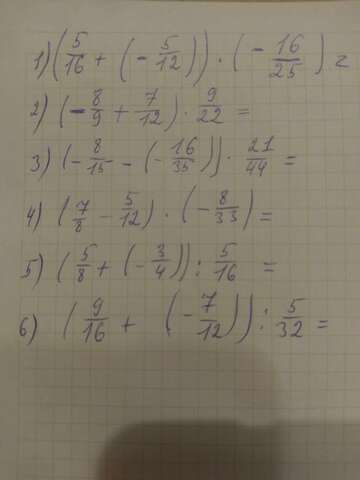 1) (5/16 + (- 5/12)) · (- 16/25) =
2) (- 8/9 + 7/12) · 9/22 =
3) (- 8/15 - (- 16/35)) · 21/44 =
4) (7/8 - 5/12) · (- 8/33) =
5) (5/8 + (- 3/4)) : 5/16 =
6) (9/16 + (- 7/12)) : 5/32 =